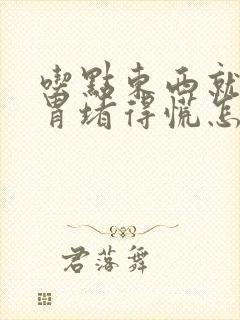 喫點東西就
胃堵得慌怎
君落舞